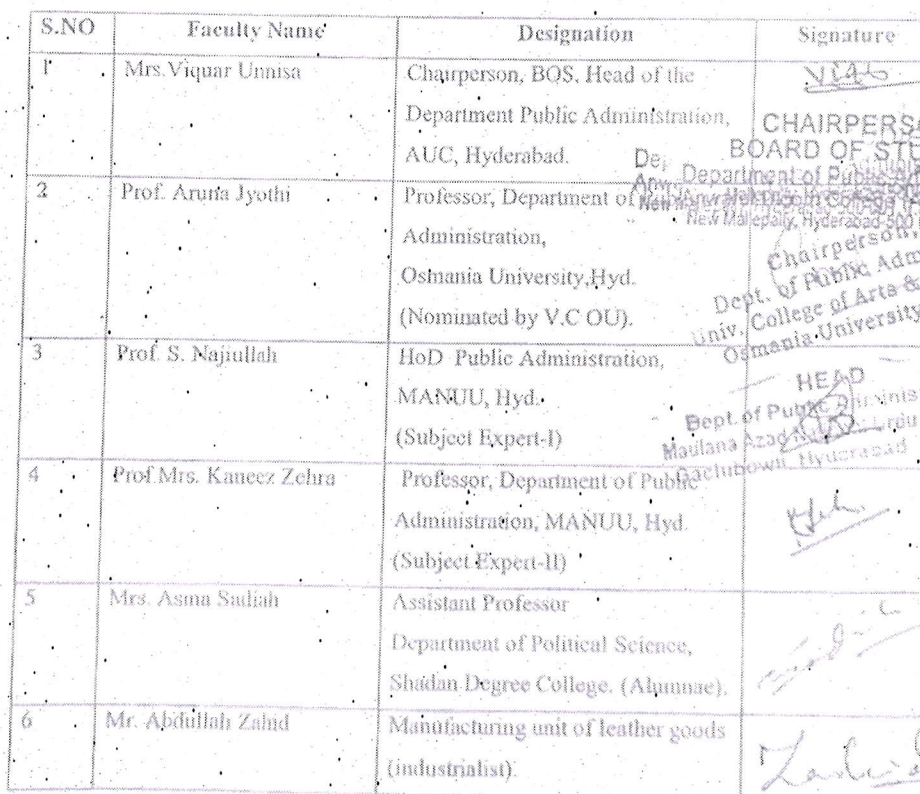 S.NO Faculty Name Designation Signature
1 Mrs.Viquar Unnisa Chairperson, BOS, Head of the
Department Public Administration,
AUC, Hyderabad.
CHAIRPERSO
BOARD OF STU
Department of Public
New Mallepally, Hyderabad-500
2 Prof. Aruna Jyothi Professor, Department of
Administration,
Osmania University,Hyd.
(Nominated by V.C OU).
Chairperson,
Dept. of Public Adm
Univ. College of Arts &
Osmania University
3 Prof. S. Najiullah HoD Public Administration,
MANUU, Hyd.
(Subject Expert-I)
HEAD
Dept. of Public Adminis
Maulana Azad Urdu
Hyderabad
4 Prof.Mrs. Kaneez Zehra Professor, Department of Public
Administration, MANUU, Hyd.
(Subject Expert-II)
5 Mrs. Asma Sadiah Assistant Professor
Department of Political Science,
Shadan Degree College. (Alumnae).
6 Mr. Abdullah Zahid Manufacturing unit of leather goods
(industrialist).